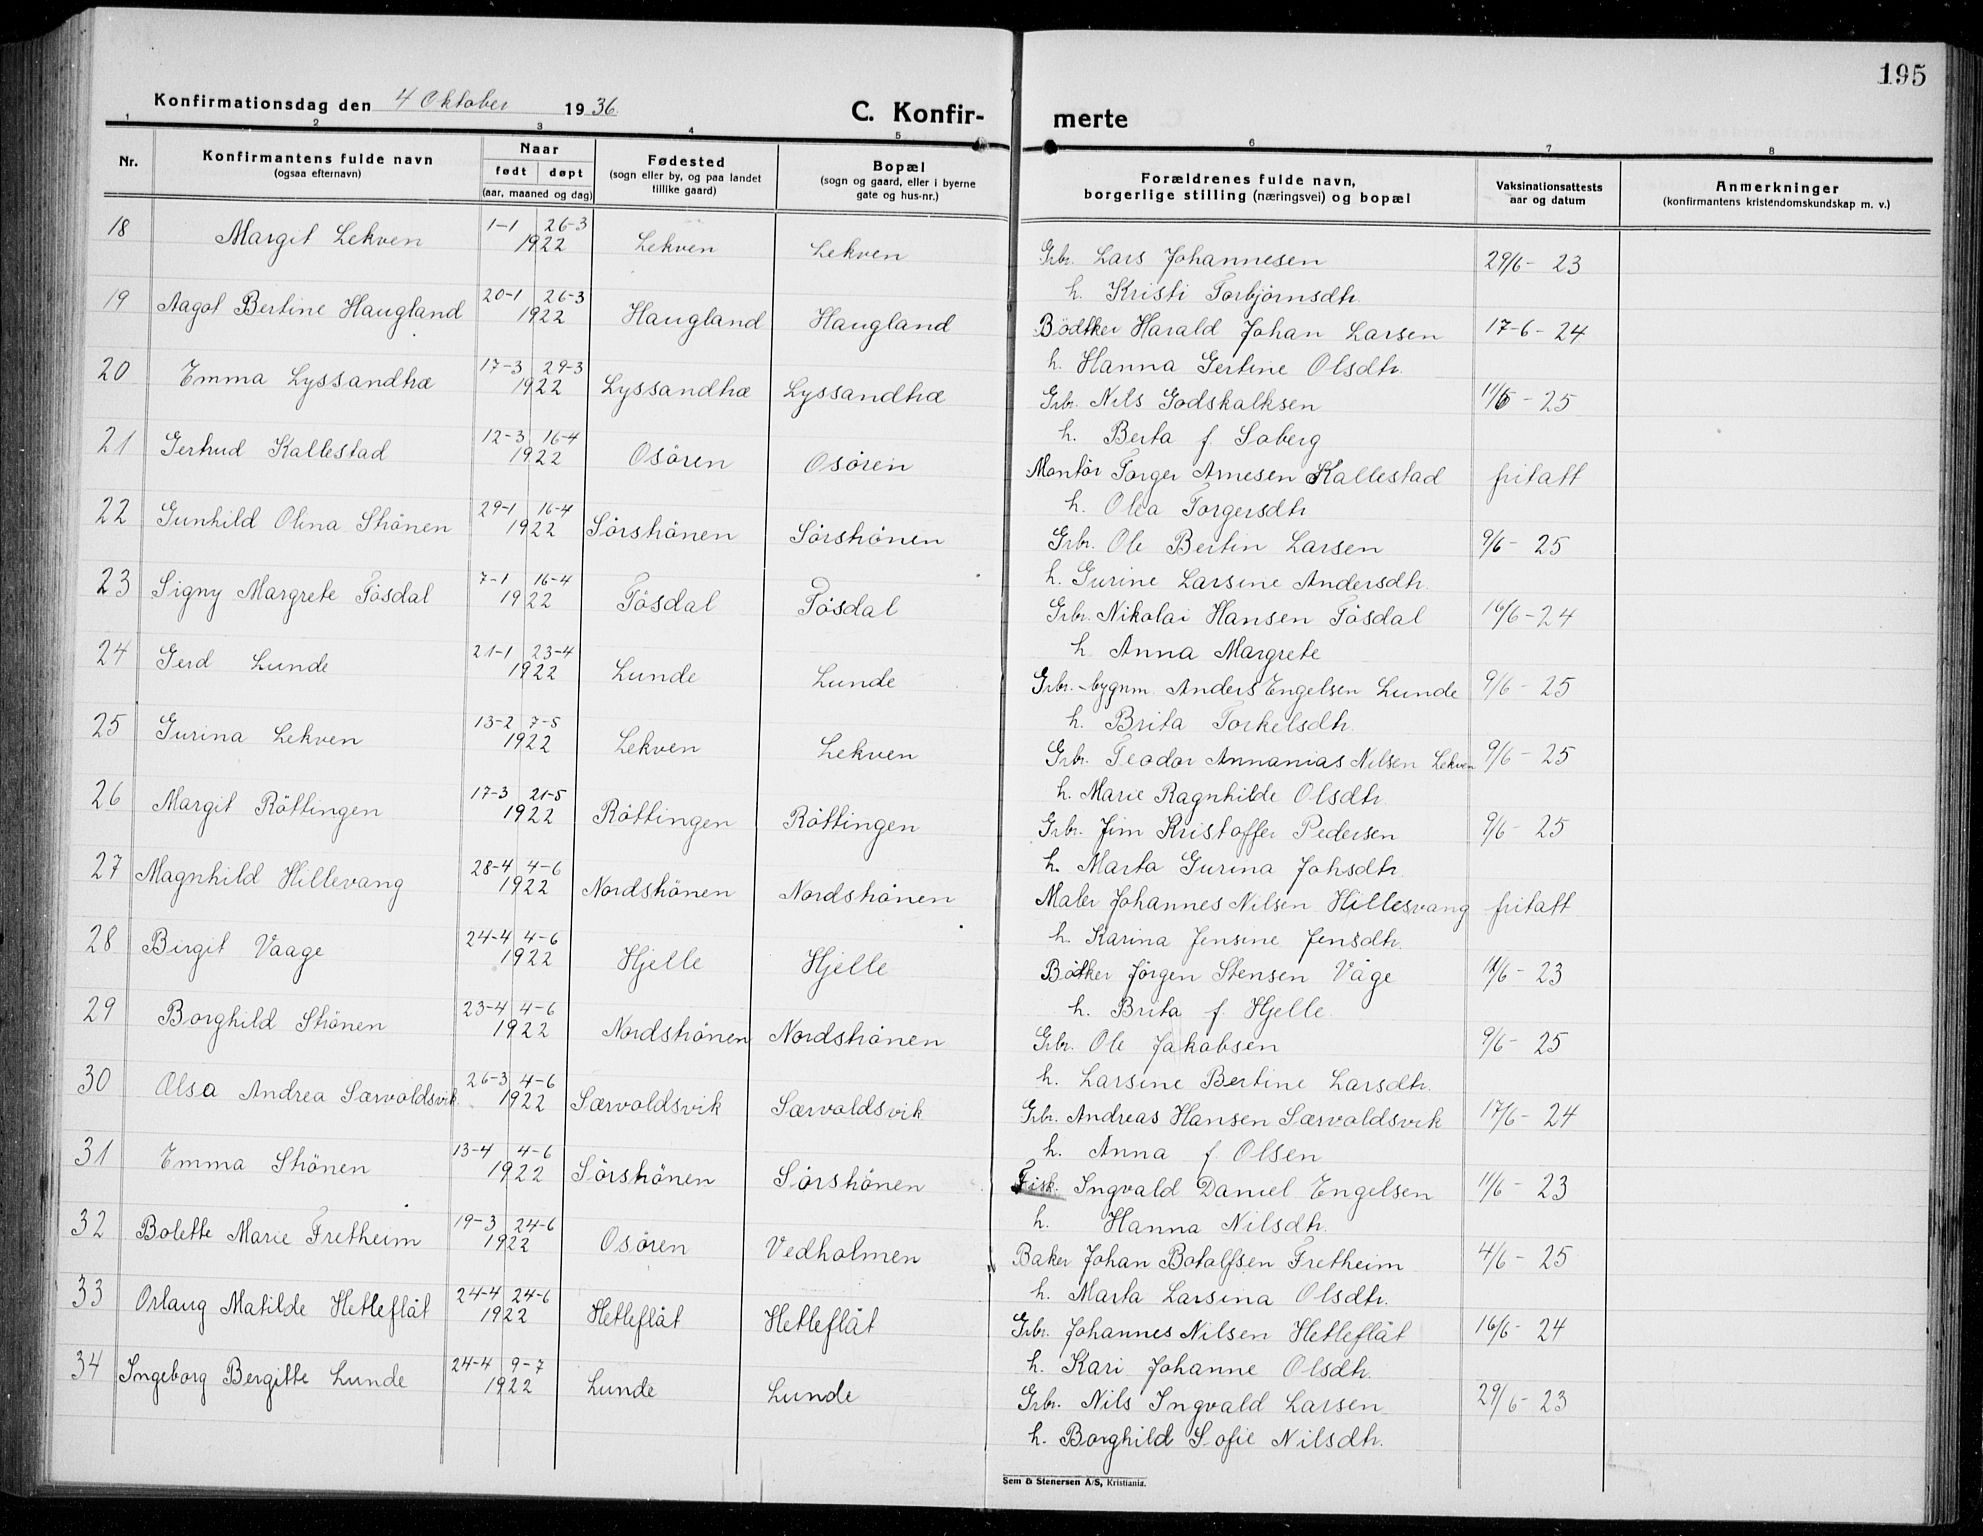 195
Konfirmationsdag den 4 Oktober 1936.
C. Konfirmerte
1 2 3 4 5 6 7 8
Nr. | Konfirmantens fulde navn (ogsaa efternavn) | Naar født døpt (aar, maaned og dag) | Fødested (sogn eller by, og paa landet tillike gaard) | Bopæl (sogn og gaard, eller i byerne gate og hus-nr.) | Forældrenes fulde navn, borgerlige stilling (næringsvei) og bopæl | Vaksinationsattests aar og datum | Anmerkninger (konfirmantens kristendomskundskap m. v.)
18 Margit Lekven 1-1 26-3 1922 Lekven Lekven Grbr. Lars Johannesen 29/6 - 23
h. Kristi Torbjørnsdtr.
19 Aagot Bertine Haugland 20-1 26-3 1922 Haugland Haugland Bödtker Harald Johan Larsen 17-6-24
h. Hanna Gertine Olsdtr.
20 Emma Lyssandhæ 17-3 29-3 1922 Lyssandhæ Lyssandhæ Grbr. Nils Godskalksen 11/6 - 25
h. Berta f. Soberg
21 Gertrud Kallestad 12-3 16-4 1922 Osören Osören Montör Torger Arnesen Kallestad fritatt
h. Olea Torgersdtr
22 Gunhild Olina Skönen 29-1 16-4 1922 Sörskönen Sörskönen Grbr. Ole Bertin Larsen 9/6 - 25
h. Gurine Larsine Andersdtr.
23 Signy Margrete Tösdal 7-1 16-4 1922 Tösdal Tösdal Grbr. Nikolai Hansen Tösdal 16/6-24
h. Anna Margrete
24 Gerd Lunde 21-1 23-4 1922 Lunde Lunde Grbr.-bygnm. Anders Engelsen Lunde 9/6 - 25
h. Brita Torkelsdtr.
25 Gurina Lekven 13-2 7-5 1922 Lekven Lekven Grbr. Teodor Annanias Nilsen Lekven 9/6 - 25
h. Marie Ragnhilde Olsdtr.
26 Margit Röttingen 17-3 21-5 1922 Röttingen Röttingen Grbr. Jim Kristoffer Pedersen 9/6 - 25
h. Marta Gurina Johsdtr.
27 Magnhild Hillevang 28-4 4-6 1922 Nordskönen Nordskönen Maler Johannes Nilsen Hillesvang fritatt
h. Karina Jensine Jensdtr.
28 Birgit Vaage 24-4 4-6 1922 Hjelle Hjelle Bötker Jörgen Stensen Våge 11/6 - 23
h. Brita f. Hjelle.
29 Borghild Skönen 23-4 4-6 1922 Nordskönen Nordskönen Grbr. Ole Jakobsen 9/6 - 25
h. Larsine Bertine Larsdtr.
30 Olsa Andrea Særvoldsvik 26-3 4-6 1922 Særvoldsvik Særvoldsvik Grbr. Andreas Hansen Særvoldsvik 17/6 - 24
h. Anna f. Olsen
31 Emma Skönen 13-4 4-6 1922 Sörskönen Sörskönen Fisk. Ingvald Daniel Engelsen 11/6 - 23
h. Hanna Nilsdtr.
32 Bolette Marie Fretheim 19-3 24-6 1922 Osören Vedholmen Baker Johan Botolfsen Fretheim 4/6 - 25
h. Marta Larsina Olsdtr.
33 Orlaug Matilde Hetleflåt 24-4 24-6 1922 Hetleflåt Hetleflåt Grbr. Johannes Nilsen Hetleflåt 16/6 - 24
h. Kari Johanne Olsdtr.
34 Ingeborg Bergitte Lunde 24-4 9-7 1922 Lunde Lunde Grbr. Nils Ingvald Larsen 29/6 - 23
h. Borghild Sofie Nilsdtr.
Sem & Stenersen A/S, Kristiania.